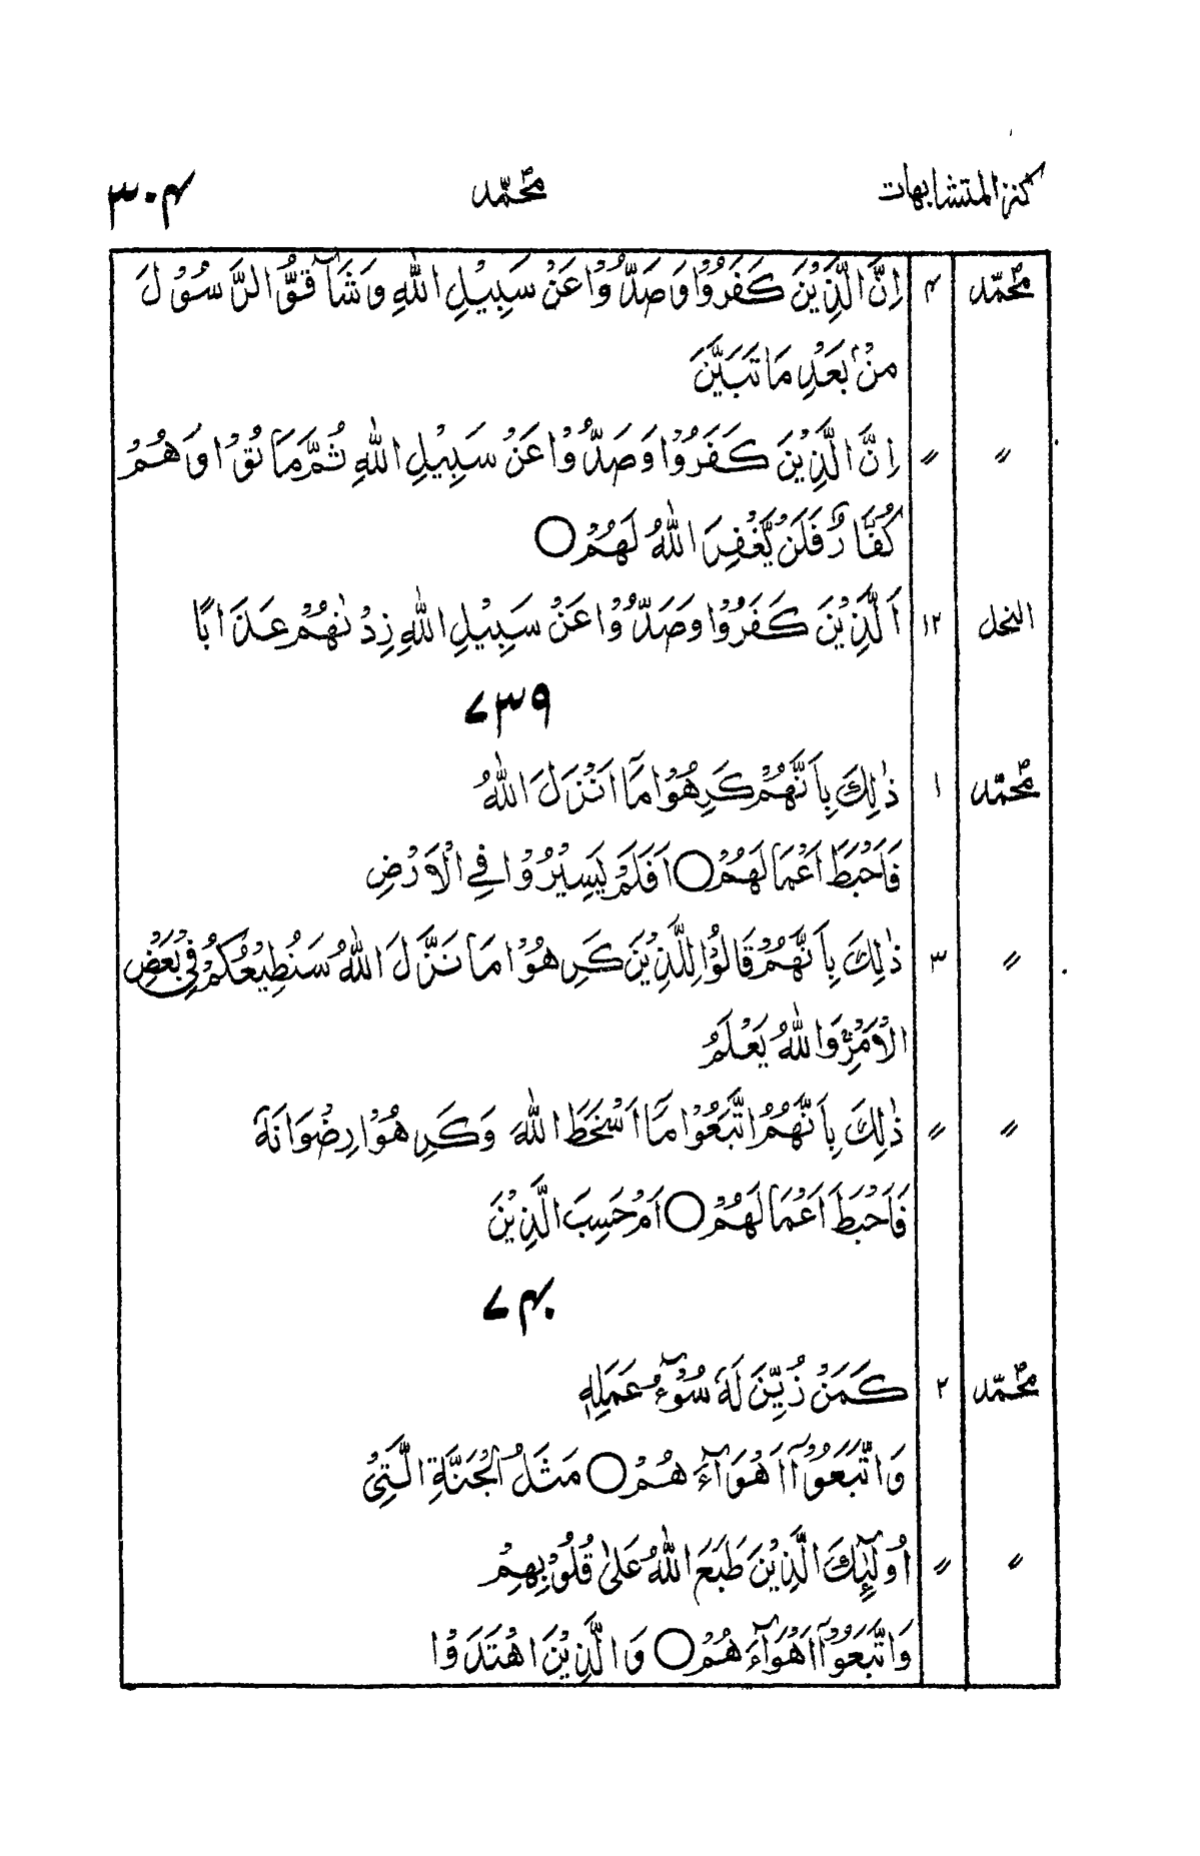 كنز المتشابهات محمّد ٣٠٤
محمّد ٤ اِنَّ الَّذِيْنَ كَفَرُوْا وَصَدُّوْا عَنْ سَبِيْلِ اللّٰهِ وَشَآقُّوا الرَّسُوْلَ
مِنْۢ بَعْدِ مَا تَبَيَّنَ
〃 〃 اِنَّ الَّذِيْنَ كَفَرُوْا وَصَدُّوْا عَنْ سَبِيْلِ اللّٰهِ ثُمَّ مَا تُوْا وَهُمْ
كُفَّارٌ فَلَنْ يَّغْفِرَ اللّٰهُ لَهُمْ ○
النحل ١٢ اَلَّذِيْنَ كَفَرُوْا وَصَدُّوْا عَنْ سَبِيْلِ اللّٰهِ زِدْنٰهُمْ عَذَابًا
٧٣٩
محمّد ١ ذٰلِكَ بِاَنَّهُمْ كَرِهُوْا مَآ اَنْزَلَ اللّٰهُ
فَاَحْبَطَ اَعْمَالَهُمْ ○ اَفَلَمْ يَسِيْرُوْا فِي الْاَرْضِ
〃 ٣ ذٰلِكَ بِاَنَّهُمْ قَالُوْا لِلَّذِيْنَ كَرِهُوْا مَا نَزَّلَ اللّٰهُ سَنُطِيْعُكُمْ فِيْ بَعْضِ
الْاَمْرِ ۚ وَاللّٰهُ يَعْلَمُ
〃 〃 ذٰلِكَ بِاَنَّهُمُ اتَّبَعُوْا مَآ اَسْخَطَ اللّٰهَ وَكَرِهُوْا رِضْوَانَهٗ
فَاَحْبَطَ اَعْمَالَهُمْ ○ اَمْ حَسِبَ الَّذِيْنَ
٧٤٠
محمّد ٢ كَمَنْ زُيِّنَ لَهٗ سُوْٓءُ عَمَلِهٖ
وَاتَّبَعُوْٓا اَهْوَآءَهُمْ ○ مَثَلُ الْجَنَّةِ الَّتِيْ
〃 〃 اُولٰٓئِكَ الَّذِيْنَ طَبَعَ اللّٰهُ عَلٰى قُلُوْبِهِمْ
وَاتَّبَعُوْٓا اَهْوَآءَهُمْ ○ وَالَّذِيْنَ اهْتَدَوْا